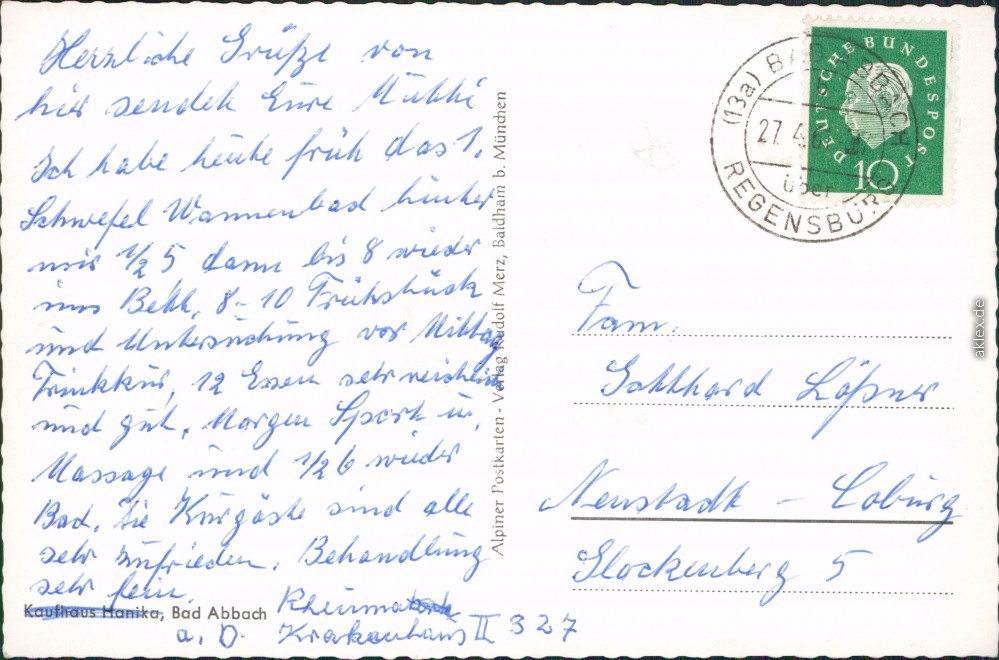 Herzliche Grüße von
hier sendet Eure Mutti
Ich habe heute früh das 1.
Schwefel Wannenbad hinter
mir 1/2 5, dann bis 8 wieder
ins Bett, 8-10 Frühstück
und Untersuchung vor Mittag
Trinkkur, 12 Essen sehr reichlich
und gut. Morgen Sport u.
Massage und 1/2 6 wieder
Bad. Die Kurgäste sind alle
sehr zufrieden. Behandlung
sehr fein.
Kaufhaus Hanika, Bad Abbach
a. D.
Rheuma
Krakenhaus II 327
Alpiner Postkarten - Verlag Rudolf Merz, Baldham b. München
(13a) BAD ABBACH
27.4.6
über
REGENSBURG
DEUTSCHE BUNDESPOST
10
Fam.
Gotthard Lößner
Neustadt - Coburg
Glockenberg 5
aklex.de